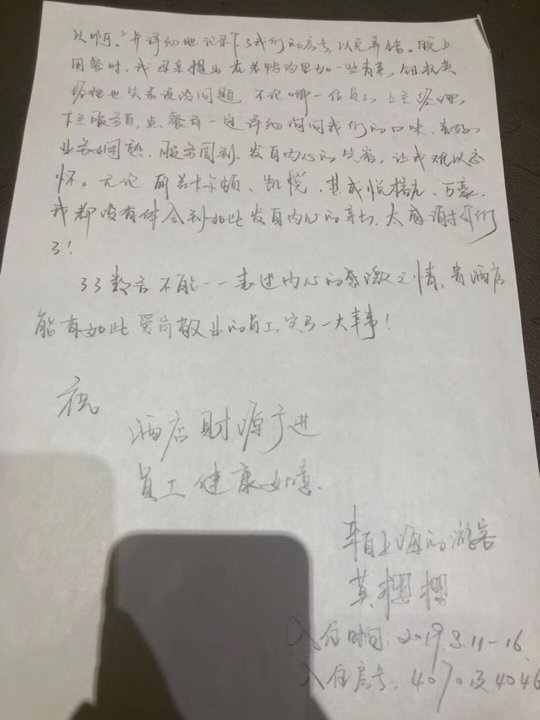 从啊。”并详细地记录下了我们的房号,以免弄错。晚上
用餐时,我母亲提出在老鸭汤里加一些青菜,
也笑着说没问题。不论哪一位员工,
服务员,点餐前一定详细询问我们的口味、喜好。
业务如此娴熟,服务周到,发自内心的笑容,让我难以忘
怀。无论丽思卡尔顿、凯悦、万豪,
我都没有体会到如此发自内心的亲切,太感谢你们
了!
寥寥数言不能一一表述内心的感激之情,贵酒店
能有如此爱岗敬业的员工实乃一大幸事!
祝
酒店财源广进
员工健康如意.
来自上海的游客
入住时间:2019.3.11-16
入住房号:4070及4046